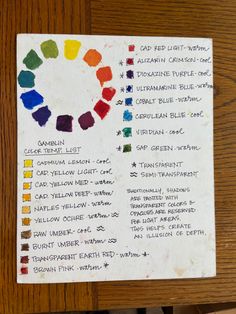 CAD RED LIGHT - warm
* ALIZARIN CRIMSON - cool
* DIOXAZINE PURPLE - cool
* ULTRAMARINE BLUE - warm
≈ COBALT BLUE - warm
≈ CERULEAN BLUE - cool
* VIRIDIAN - cool
* SAP GREEN - warm
* TRANSPARENT
≈ SEMI-TRANSPARENT
TRADITIONALLY, SHADOWS
ARE PAINTED WITH
TRANSPARENT COLORS &
OPAQUES ARE RESERVED
FOR LIGHT AREAS.
THIS HELPS CREATE
AN ILLUSION OF DEPTH.
GAMBLIN
COLOR TEMP. LIST
CADMIUM LEMON - cool
CAD YELLOW LIGHT - cool
CAD. YELLOW MED - warm
CAD YELLOW DEEP - warm
NAPLES YELLOW - warm
YELLOW OCHRE - warm ≈
RAW UMBER - cool ≈
BURNT UMBER - warm ≈
TRANSPARENT EARTH RED - warm *
BROWN PINK - warm *